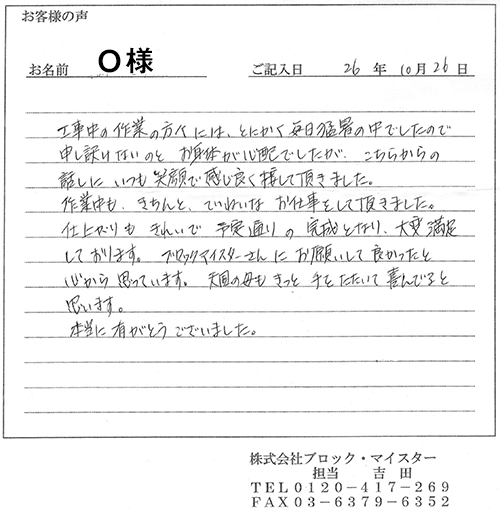 お客様の声
お名前 O様 ご記入日 26年10月26日
工事中の作業の方々には、とにかく毎日猛暑の中でしたので
申し訳けないのと お身体が心配でしたが、こちらからの
話しに いつも笑顔で感じ良く接して頂きました。
作業中も、きちんと、ていねいな お仕事をして頂きました。
仕上がりも きれいで 予定通りの 完成となり、大変満足
しております。 ブロックマイスターさんに お願いして良かったと
心から 思っています。 天国の母も きっと 手をたたいて 喜んでると
思います。
本当に 有がとうございました。
株式会社ブロック・マイスター
担当 吉田
TEL0120-417-269
FAX03-6379-6352